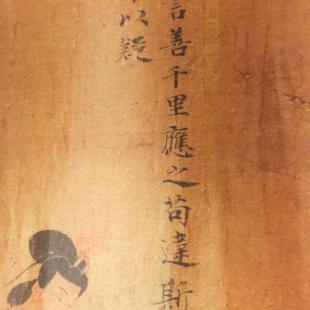 言善千里應之苟違斯
以疑